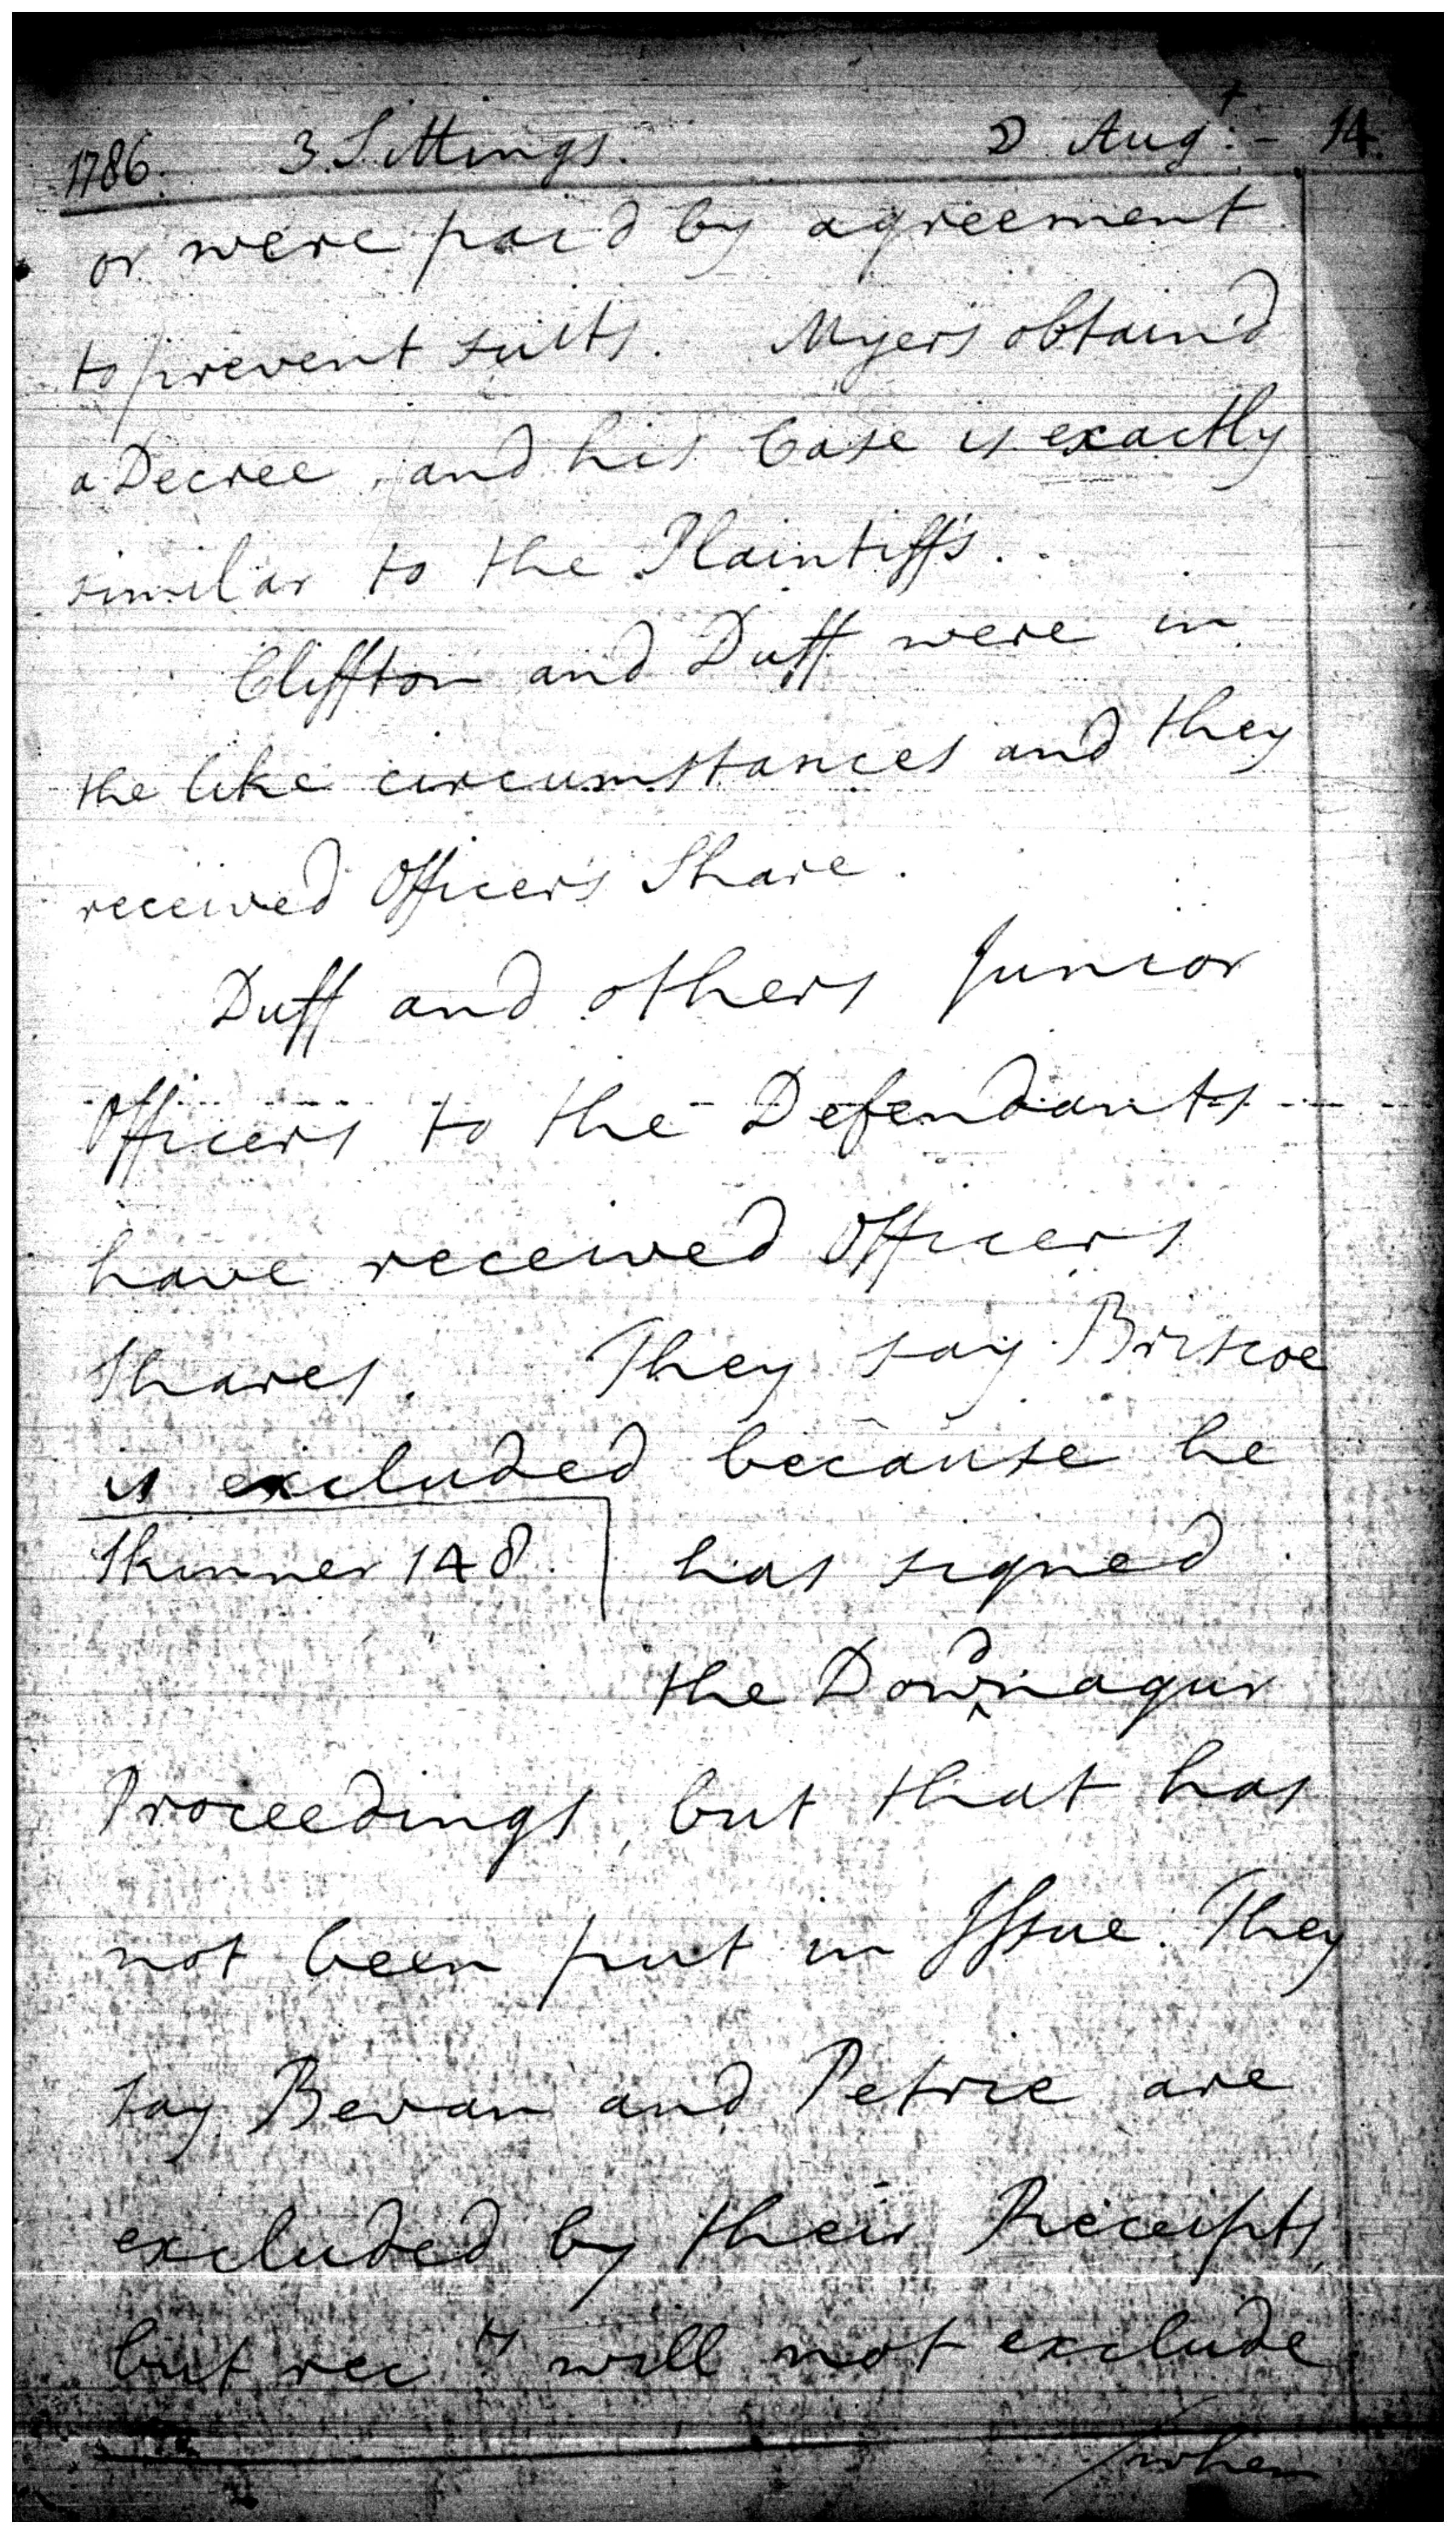 1786. 3. Sittings. D Augt. - 14.
or were paid by agreement
to prevent suits. Myers obtain'd
a Decree, and his Case is exactly
similar to the Plaintiffs.
Cliffton and Duff were in
the like circumstances and they
received Officer's Share.
Duff and others Junior
Officers to the Defendants
have received Officers
Shares. They say Briscoe
is excluded because he
Skinner 148. has signed
the Dowdnagur
Proceedings, but that has
not been put in Issue. They
say Bevan and Petrie are
excluded by their Receipts,
but rects will not exclude
/when